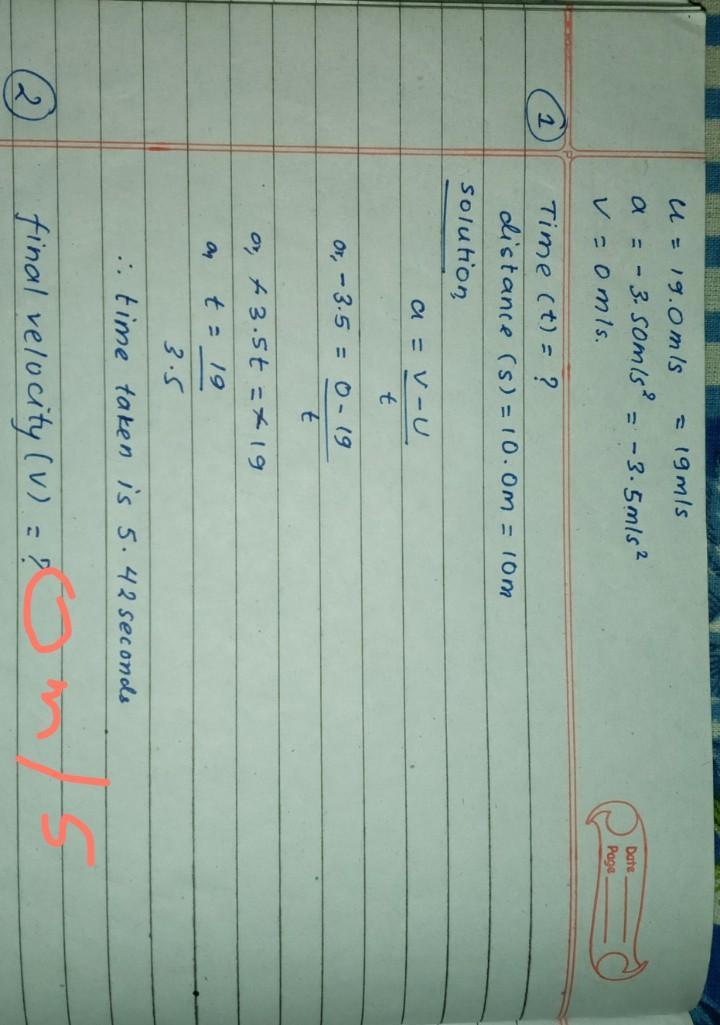 Date
Page
u = 19.0m/s = 19m/s
a = -3.50m/s² = -3.5m/s²
v = 0m/s.
① Time (t) = ?
distance (s) = 10.0m = 10m
solution,
a = v-u
t
or, -3.5 = 0-19
t
or, -3.5t = -19
or, t = 19
3.5
∴ time taken is 5.42 seconds
② final velocity (v) = ? 0 m/s